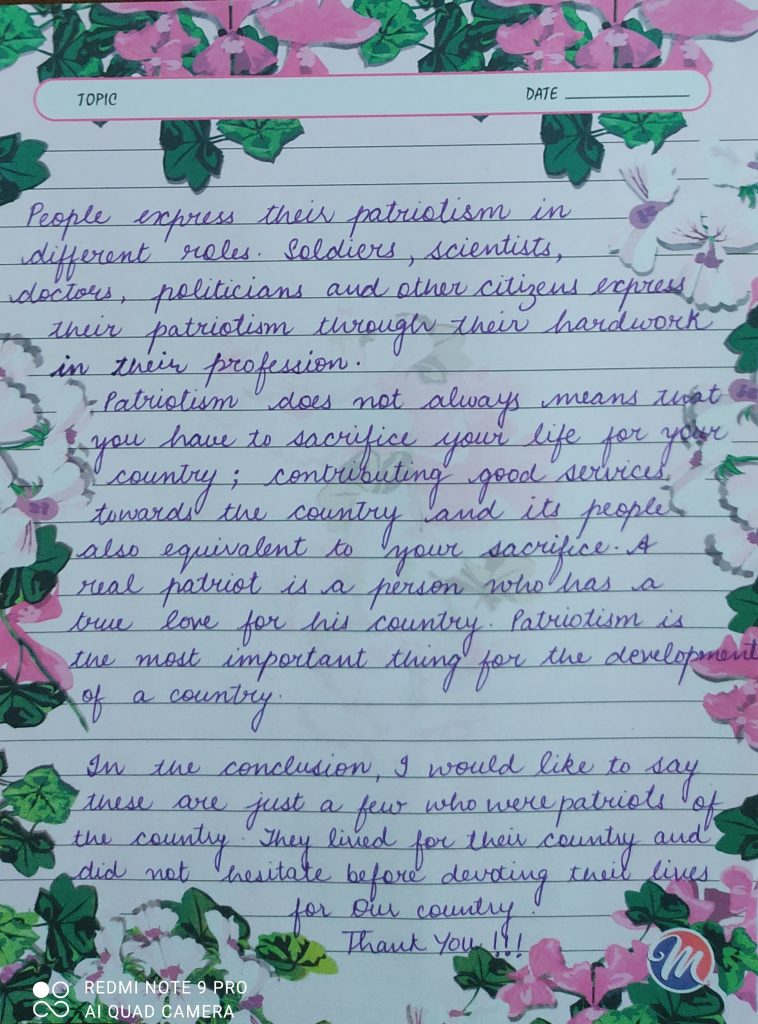 TOPIC
DATE
People express their patriotism in
different roles. Soldiers, scientists,
doctors, politicians and other citizens express
their patriotism through their hardwork
in their profession.
Patriotism does not always means that
you have to sacrifice your life for your
country; contributing good services
towards the country and its people
also equivalent to your sacrifice. A
real patriot is a person who has a
true love for his country. Patriotism is
the most important thing for the development
of a country.
In the conclusion, I would like to say
these are just a few who were patriots of
the country. They lived for their country and
did not hesitate before devoting their lives
for Our country.
Thank You !!!
M
REDMI NOTE 9 PRO
AI QUAD CAMERA